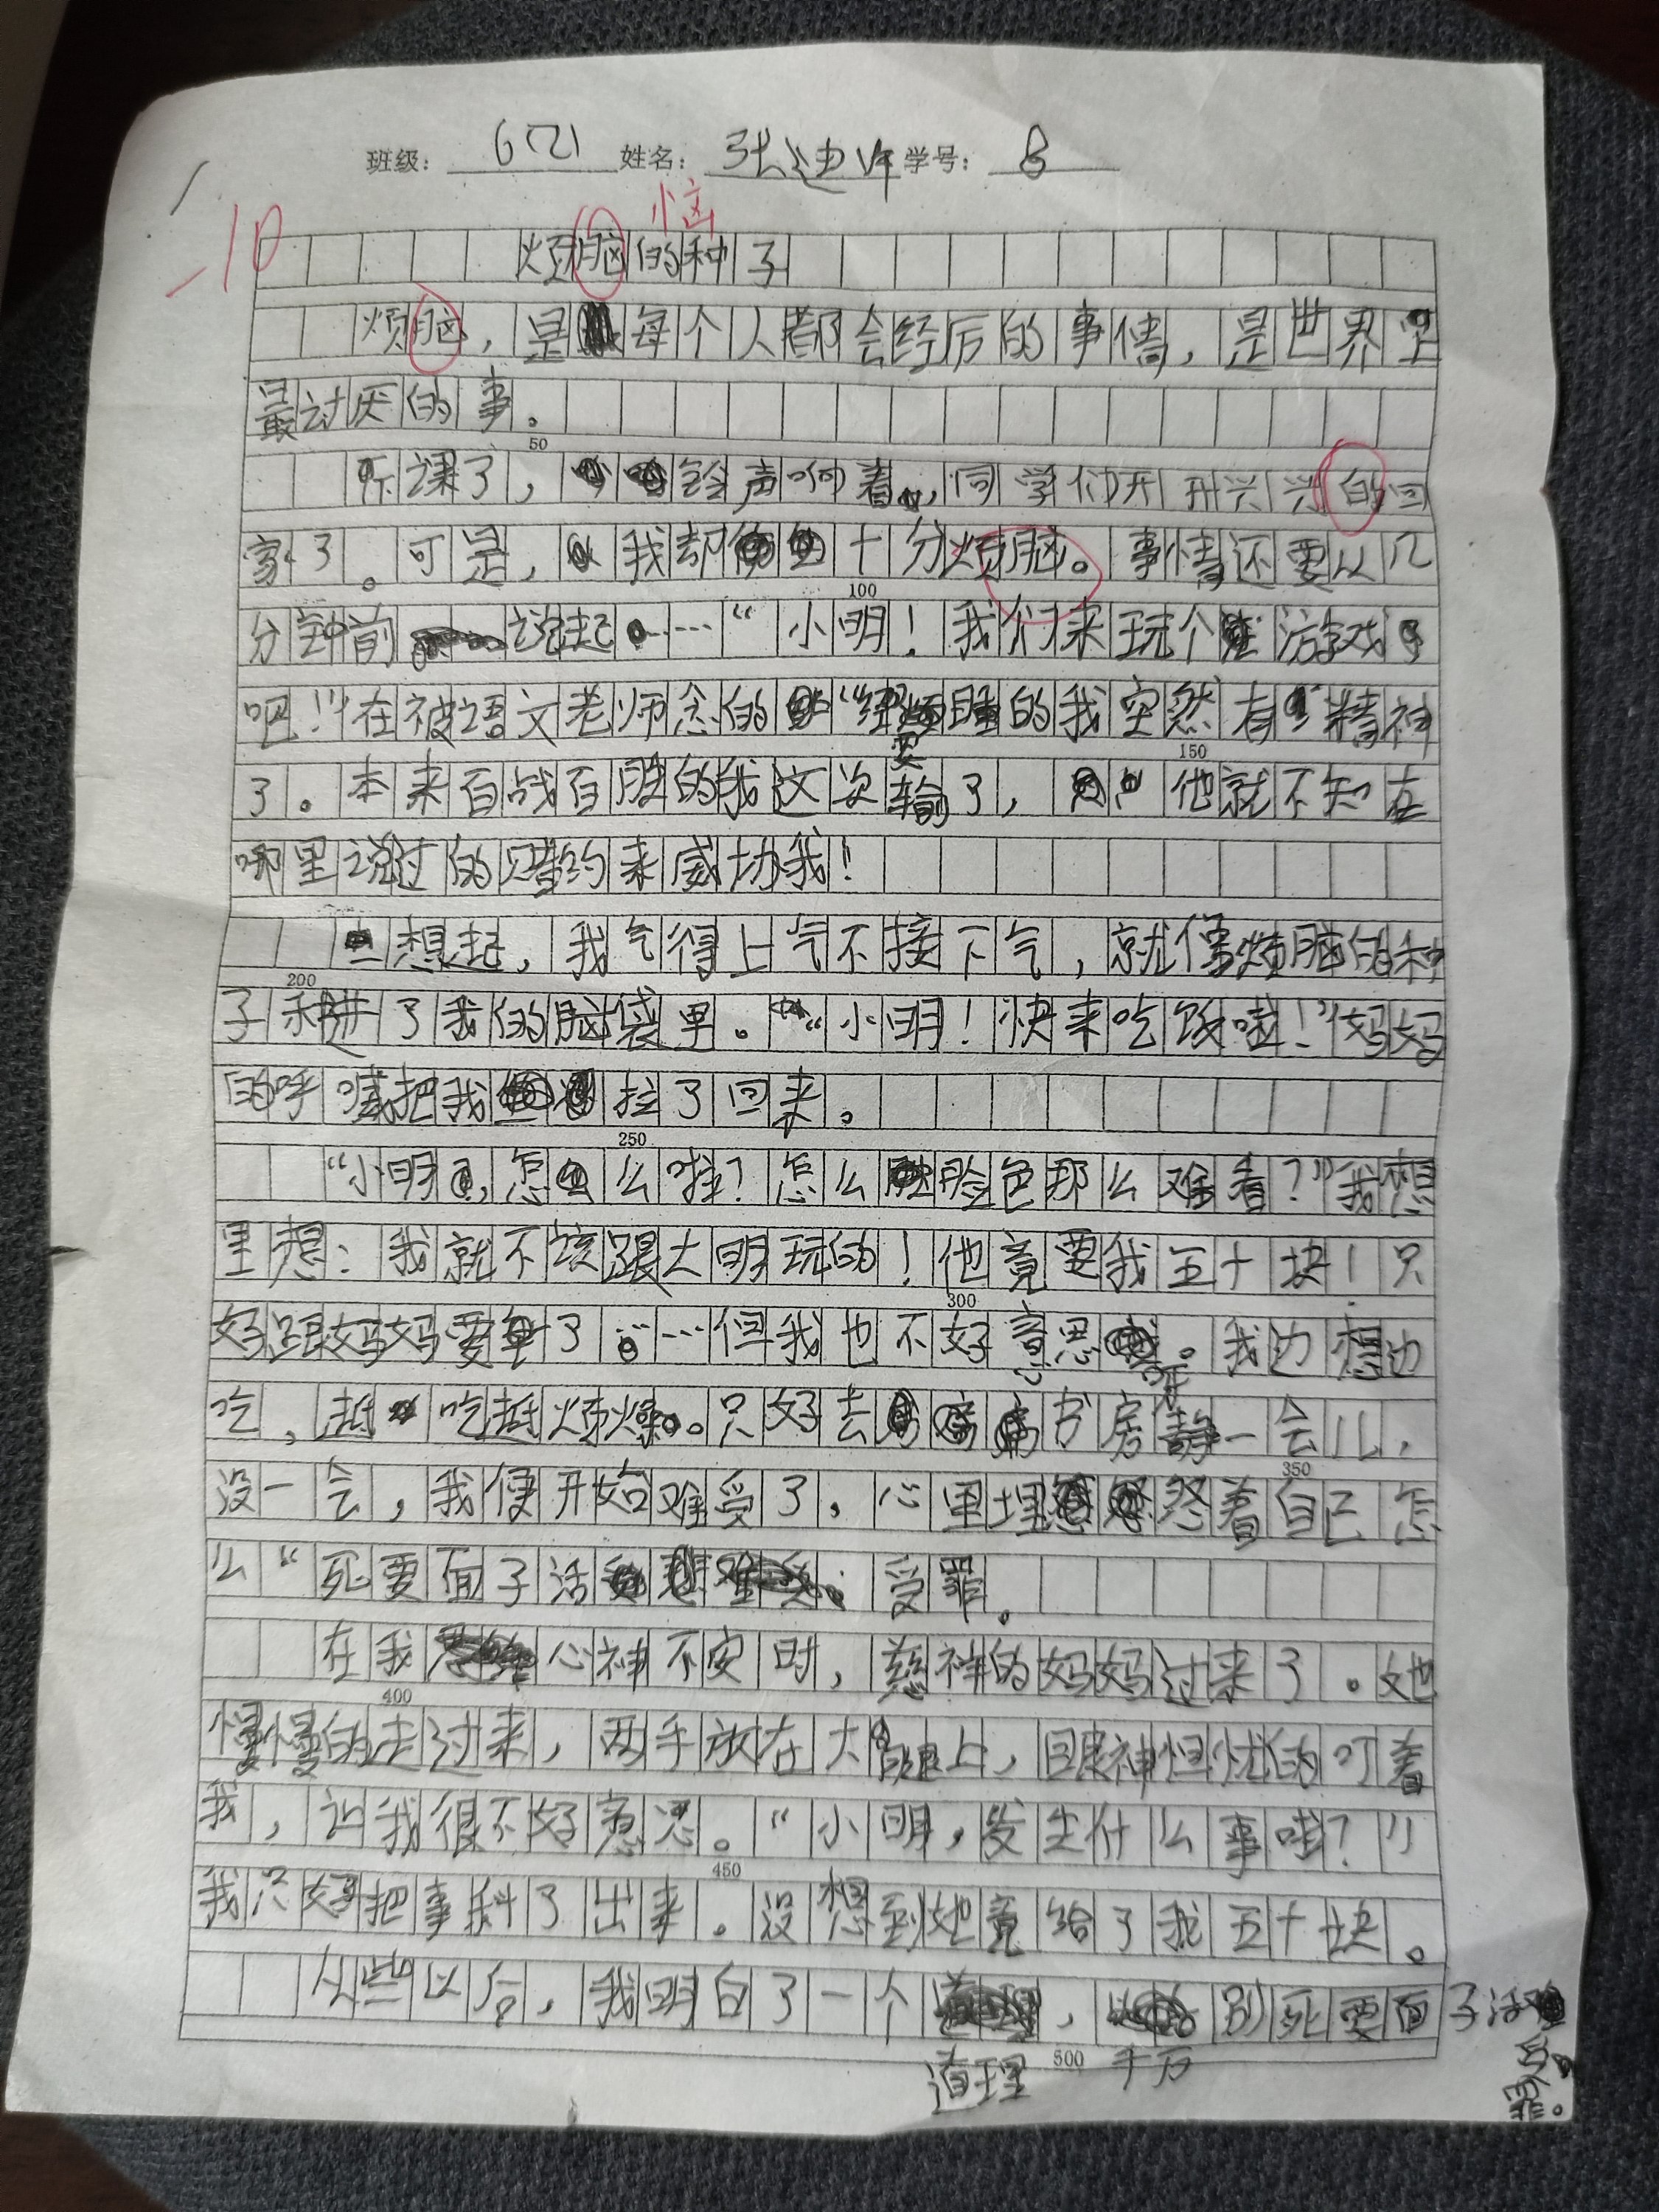 班级： 6(2) 姓名： 张 学号： 8
-10
恼
烦脑的种子
烦脑，是每个人都会经历的事情，是世界里
最讨厌的事。
50
下课了，铃声响着，同学们开开兴兴的回
家了。可是，我却十分烦脑。事情还要从几
100
分钟前说起……“小明！我们来玩个游戏
吧！”在被语文老师念的“经”睡的我突然有精神
要
150
了。本来百战百胜的我这次输了，他就不知在
哪里说过的赌约来威协我！
一想起，我气得上气不接下气，就像烦脑的种
200
子种进了我的脑袋里。“小明！快来吃饭啦！”妈妈
的呼喊把我拉了回来。
250
“小明，怎么啦？怎么脸色那么难看？”我想
里想：我就不该跟大明玩的！他竟要我五十块！只
300
好跟妈妈要了……但我也不好意思。我边想边
吃，越吃越烦燥。只好去书房静一会儿，
350
没一会，我便开始难受了，心里埋怨着自己怎
么“死要面子活受罪。
在我心神不安时，慈祥的妈妈过来了。她
400
慢慢的走过来，两手放在大腿上，眼神担忧的叮着
我，让我很不好意思。“小明，发生什么事啦？”
450
我只好把事抖了出来。没想到她竟给了我五十块。
从些以后，我明白了一个道理，千万别死要面子活受罪。
500